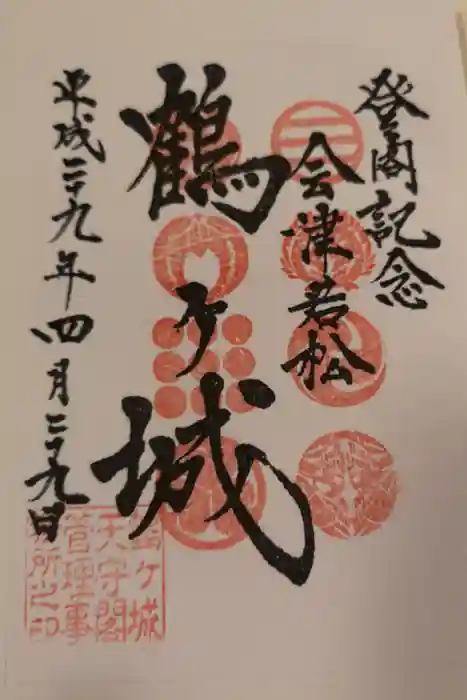 登閣記念
会津若松
鶴ヶ城
平成二十九年四月二十九日
鶴ヶ城
天守閣
管理事
務所之印